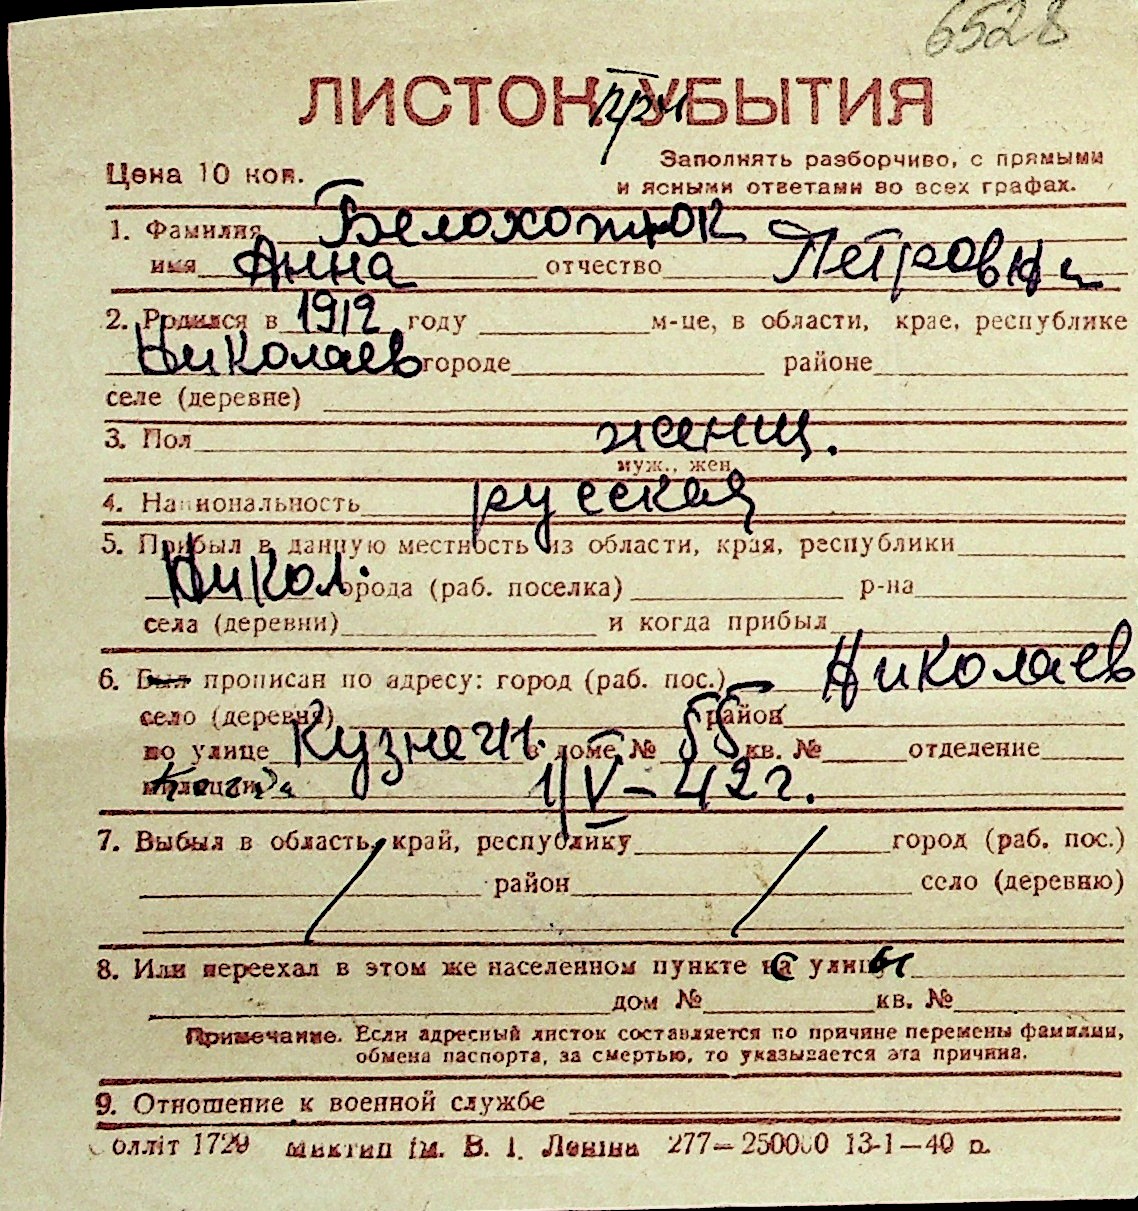 6528
ЛИСТОК при УБЫТИЯ
Цена 10 коп.
Заполнять разборчиво, с прямыми
и ясными ответами во всех графах.
1. Фамилия Белохотюк
имя Анна отчество Петровна
2. Родился в 1912 году м-це, в области, крае, республике
Николаев городе районе
селе (деревне)
3. Пол женщ.
муж., жен.
4. Национальность русская
5. Прибыл в данную местность из области, края, республики
Никол. города (раб. поселка) р-на
села (деревни) и когда прибыл
6. Был прописан по адресу: город (раб. пос.) Николаев
село (деревня) район
по улице Кузнечн. в доме № 55 кв. № отделение
милиции 1/V – 42 г.
7. Выбыл в область, край, республику город (раб. пос.)
район село (деревню)
8. Или переехал в этом же населенном пункте с улицы
дом № кв. №
Примечание. Если адресный листок составляется по причине перемены фамилии,
обмена паспорта, за смертью, то указывается эта причина.
9. Отношение к военной службе
оллiт 1729 Миктип iм. В. I. Ленiна 277—250000 13-1—40 р.